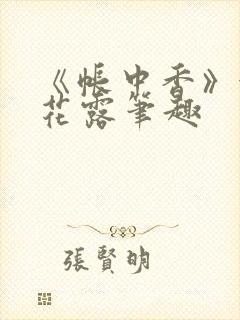 《帳中香》
花露筆趣
張賢明